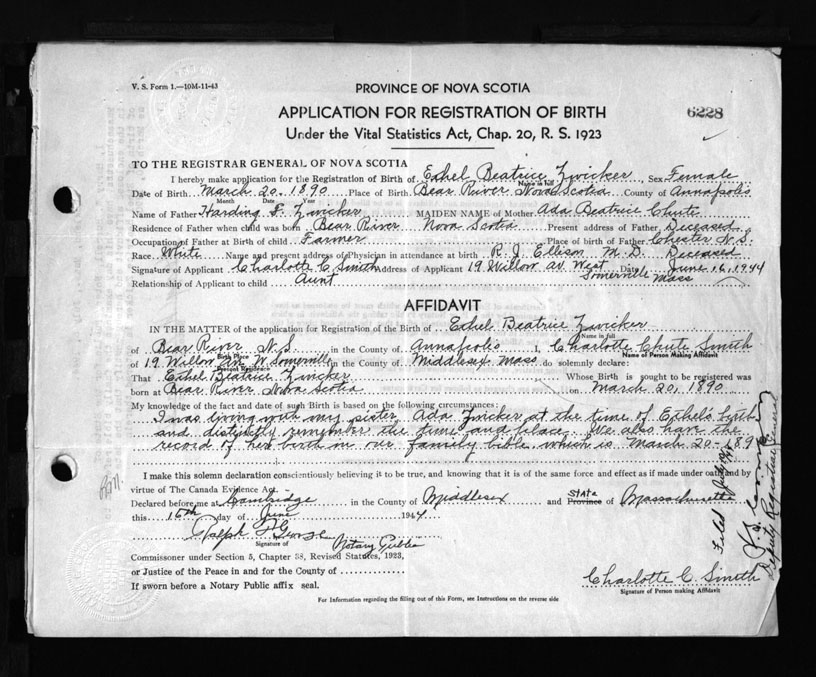 V. S. Form 1.—10M-11-43
PROVINCE OF NOVA SCOTIA
APPLICATION FOR REGISTRATION OF BIRTH
6228
Under the Vital Statistics Act, Chap. 20, R. S. 1923
TO THE REGISTRAR GENERAL OF NOVA SCOTIA
I hereby make application for the Registration of Birth of Ethel Beatrice Zwicker, Sex Female
Name in full
Date of Birth March 20, 1890 Place of Birth Bear River Nova Scotia County of Annapolis
Month Date Year
Name of Father Harding F. Zwicker MAIDEN NAME of Mother Ada Beatrice Chute
Residence of Father when child was born Bear River Nova Scotia Present address of Father Deceased
Occupation of Father at Birth of child Farmer Place of birth of Father Chester N.S.
Race White Name and present address of Physician in attendance at birth R. J. Ellison M.D. Deceased
Signature of Applicant Charlotte C Smith Address of Applicant 19 Willow Av. West Somerville Mass Date June 16, 1944
Relationship of Applicant to child Aunt
AFFIDAVIT
IN THE MATTER of the application for Registration of the Birth of Ethel Beatrice Zwicker
Name in full
of Bear River N.S. in the County of Annapolis I, Charlotte Chute Smith
Birth Place Name of Person Making Affidavit
of 19 Willow Ave W. Somerville in the County of Middlesex Mass do solemnly declare:
Present Residence
That Ethel Beatrice Zwicker Whose Birth is sought to be registered was
born at Bear River Nova Scotia on March 20, 1890
My knowledge of the fact and date of such Birth is based on the following circumstances:
I was living with my sister Ada Zwicker at the time of Ethel's birth
and distinctly remember the time and place. We also have the
record of her birth in our family bible which is March 20-189
I make this solemn declaration conscientiously believing it to be true, and knowing that it is of the same force and effect as if made under oath and by
virtue of The Canada Evidence Act
Declared before me at Cambridge in the County of Middlesex and State Province of Massachusetts
this 16th day of June 1944
Ralph
Signature of Notary Public
Commissioner under Section 5, Chapter 38, Revised Statutes, 1923,
or Justice of the Peace in and for the County of
If sworn before a Notary Public affix seal.
Charlotte C. Smith
Signature of Person making Affidavit
For Information regarding the filling out of this Form, see Instructions on the reverse side
Filed July
Deputy Registrar General